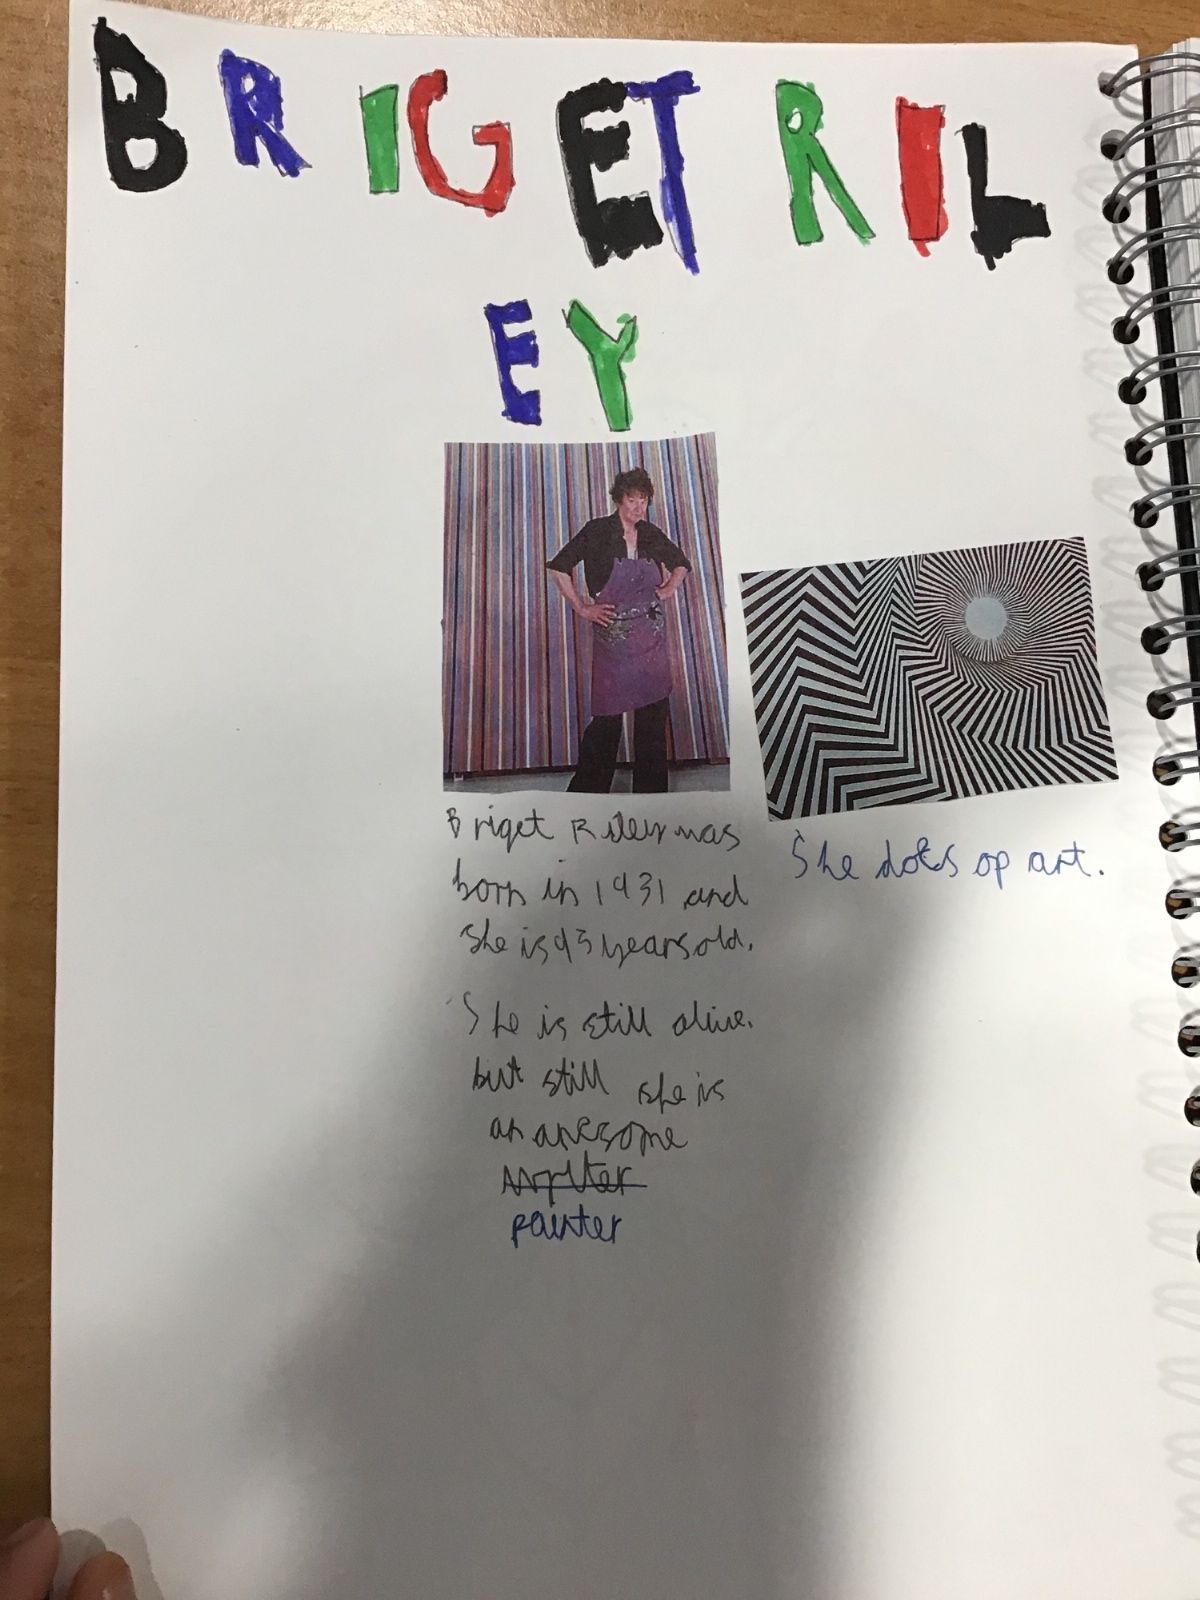 BRIGET RIL
EY
Briget Riley was
born in 1931 and
she is 93 years old.
She is still alive.
but still she is
an awesome
painter
She does op art.